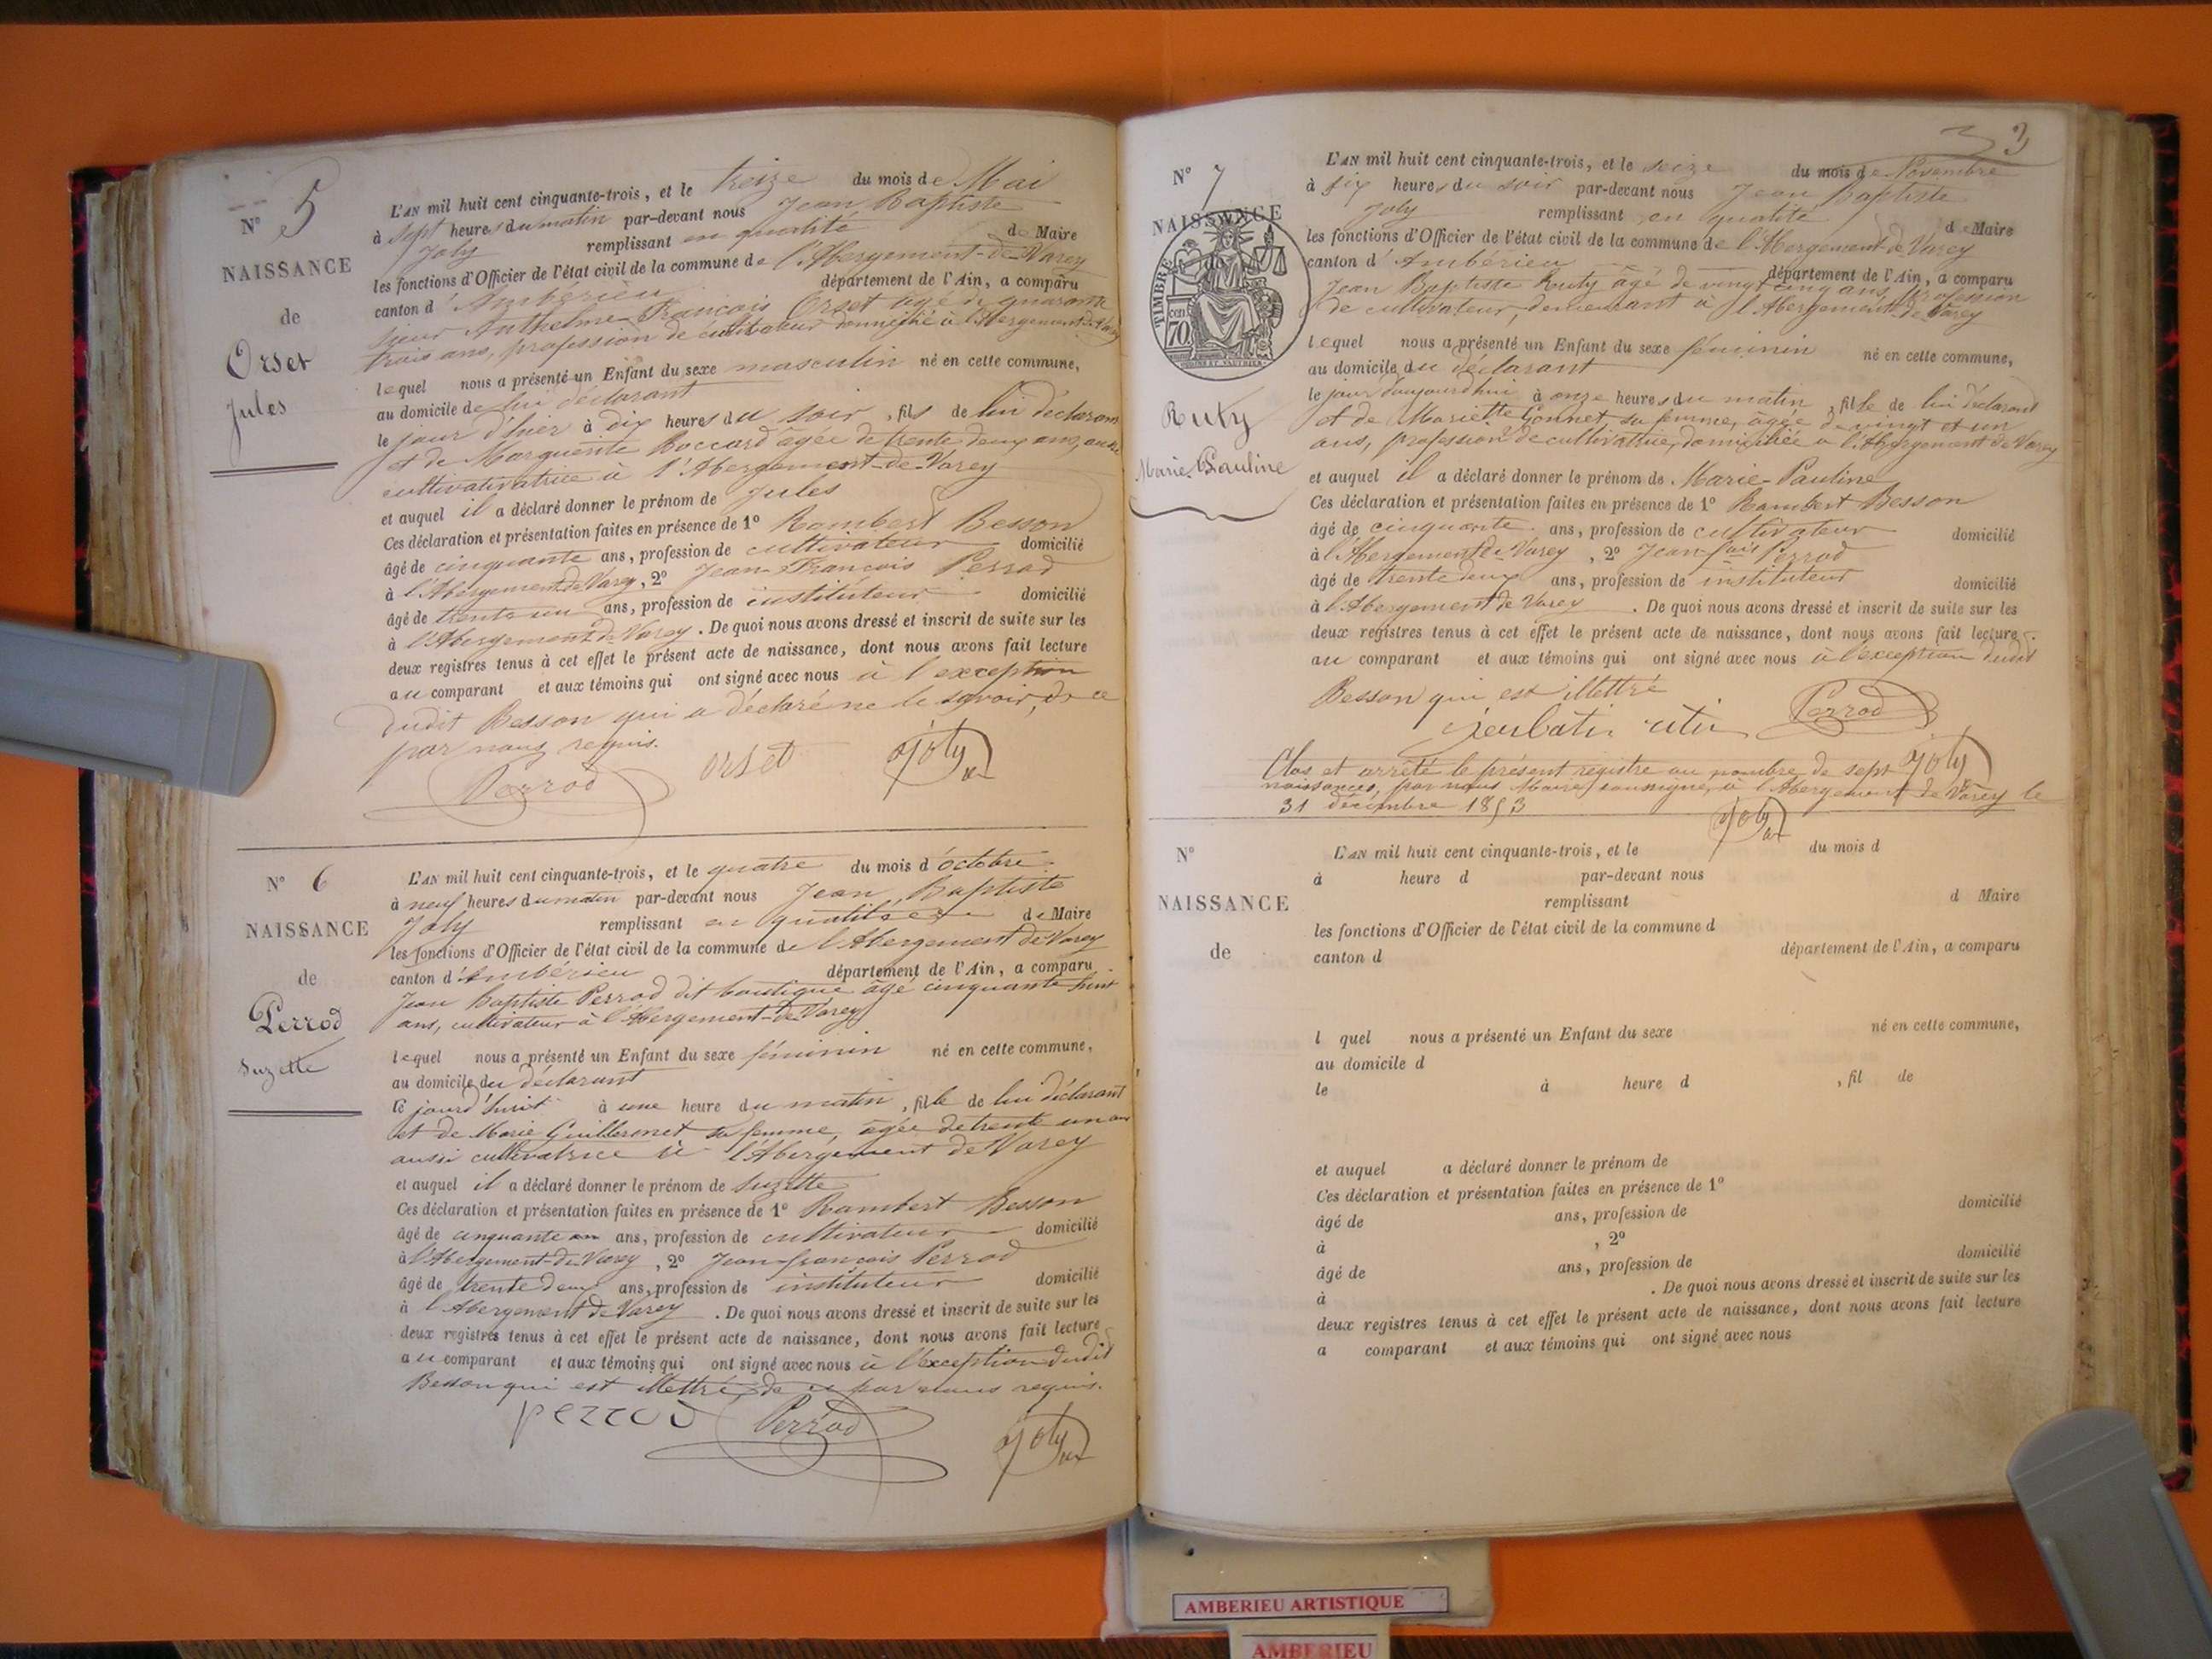 N° 5
NAISSANCE
de
Orset
Jules
L'AN mil huit cent cinquante-trois, et le treize du mois de Mai
à sept heures du matin par-devant nous Jean Baptiste
Joly remplissant en qualité de Maire
les fonctions d'Officier de l'état civil de la commune de l'Abergement-de-Varey
canton d'Ambérieu département de l'Ain, a comparu
sieur Anthelme François Orset âgé de quarante
trois ans, profession de cultivateur domicilié à l'Abergement de Varey
lequel nous a présenté un Enfant du sexe masculin né en cette commune,
au domicile de lui déclarant
le jour d'hier à dix heures du soir, fils de lui déclarant
et de Marguerite Boccard âgée de trente deux ans, aussi
cultivativatrice à l'Abergement-de-Varey
et auquel il a déclaré donner le prénom de Jules
Ces déclaration et présentation faites en présence de 1° Rambert Besson
âgé de cinquante ans, profession de cultivateur domicilié
à l'Abergement de Varey, 2° Jean-François Perrod
âgé de trente un ans, profession de instituteur domicilié
à l'Abergement de Varey. De quoi nous avons dressé et inscrit de suite sur les
deux registres tenus à cet effet le présent acte de naissance, dont nous avons fait lecture
au comparant et aux témoins qui ont signé avec nous à l'exception
dudit Besson qui a déclaré ne le savoir, de ce
par nous requis.
Perrod orset Joly
N° 6
NAISSANCE
de
Perrod
Suzette
L'AN mil huit cent cinquante-trois, et le quatre du mois d'octobre
à neuf heures du matin par-devant nous Jean Baptiste
Joly remplissant en qualité de Maire
les fonctions d'Officier de l'état civil de la commune de l'Abergement de Varey
canton d'Ambérieu département de l'Ain, a comparu
Jean Baptiste Perrod dit boutique âgé cinquante huit
ans, cultivateur à l'Abergement-de-Varey
lequel nous a présenté un Enfant du sexe féminin né en cette commune,
au domicile du déclarant
le jourd'huit à une heure du matin, fille de lui déclarant
et de Marie Guillermet sa femme, âgée de trente un ans
aussi cultivatrice à l'Abergement de Varey
et auquel il a déclaré donner le prénom de Suzette
Ces déclaration et présentation faites en présence de 1° Rambert Besson
âgé de cinquante ans, profession de cultivateur domicilié
à l'Abergement-de-Varey, 2° Jean-françois Perrod
âgé de trente deux ans, profession de instituteur domicilié
à l'Abergement de Varey. De quoi nous avons dressé et inscrit de suite sur les
deux registres tenus à cet effet le présent acte de naissance, dont nous avons fait lecture
au comparant et aux témoins qui ont signé avec nous à l'exception dudit
Besson qui est illettré, de ce par nous requis.
perrod Perrod Joly
3
N° 7
NAISSANCE
de
TIMBRE
cen
70
Ruty
Marie-Pauline
L'AN mil huit cent cinquante-trois, et le seize du mois de Novembre
à six heures du soir par-devant nous Jean Baptiste
Joly remplissant en qualité de Maire
les fonctions d'Officier de l'état civil de la commune de l'Abergement-de-Varey
canton d'Ambérieu département de l'Ain, a comparu
Jean Baptiste Ruty âgé de vingt cinq ans, profession
de cultivateur, demeurant à l'Abergement-de-Varey
lequel nous a présenté un Enfant du sexe féminin né en cette commune,
au domicile du déclarant
le jour d'aujourd'hui à onze heures du matin, fille de lui déclarant
et de Mariette Gonnet, sa femme, âgée de vingt et un
ans, profession de cultivatrice, domiciliée à l'Abergement de Varey
et auquel il a déclaré donner le prénom de Marie-Pauline
Ces déclaration et présentation faites en présence de 1° Rambert Besson
âgé de cinquante ans, profession de cultivateur domicilié
à l'Abergement de Varey, 2° Jean-fois Perrod
âgé de trente deux ans, profession de instituteur domicilié
à l'Abergement de Varey. De quoi nous avons dressé et inscrit de suite sur les
deux registres tenus à cet effet le présent acte de naissance, dont nous avons fait lecture
au comparant et aux témoins qui ont signé avec nous à l'exception dudit
Besson qui est illettré
Perrod
Clos et arrêté le présent registre au nombre de sept Joly
naissances, par nous Maire soussigné, à l'Abergement de Varey le
31 décembre 1853
Joly
N°
NAISSANCE
de
L'AN mil huit cent cinquante-trois, et le du mois d
à heure d par-devant nous
remplissant d Maire
les fonctions d'Officier de l'état civil de la commune d
canton d département de l'Ain, a comparu
l quel nous a présenté un Enfant du sexe né en cette commune,
au domicile d
le à heure d , fil de
et auquel a déclaré donner le prénom de
Ces déclaration et présentation faites en présence de 1°
âgé de ans, profession de domicilié
à , 2°
âgé de ans, profession de domicilié
à . De quoi nous avons dressé et inscrit de suite sur les
deux registres tenus à cet effet le présent acte de naissance, dont nous avons fait lecture
a comparant et aux témoins qui ont signé avec nous
AMBERIEU ARTISTIQUE
AMBERIEU